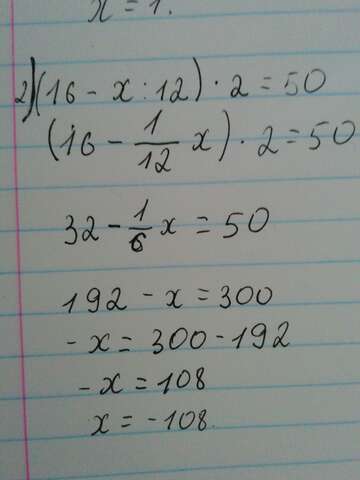 x = 1.
2) (16 - x : 12) · 2 = 50
(16 - 1/12 x) · 2 = 50
32 - 1/6 x = 50
192 - x = 300
- x = 300 - 192
- x = 108
x = -108.